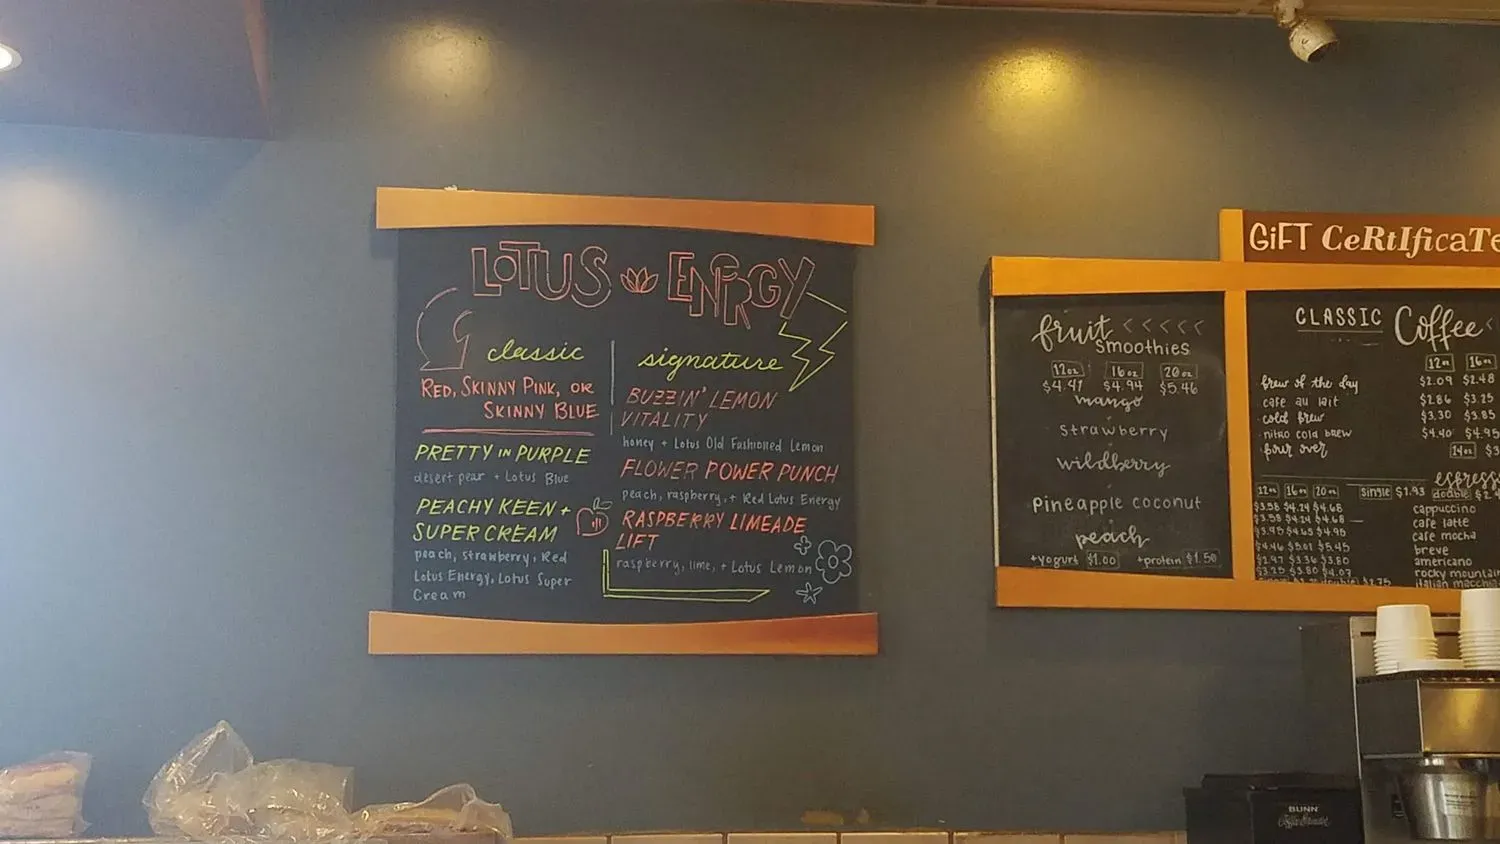 LOTUS ENERGY
classic
RED, SKINNY PINK, OR
SKINNY BLUE
PRETTY IN PURPLE
desert pear + Lotus Blue
PEACHY KEEN +
SUPER CREAM
peach, strawberry, Red
Lotus Energy, Lotus Super
Cream
signature
BUZZIN' LEMON
VITALITY
honey + Lotus Old Fashioned Lemon
FLOWER POWER PUNCH
peach, raspberry, + Red Lotus Energy
RASPBERRY LIMEADE
LIFT
raspberry, lime, + Lotus Lemon
fruit <<<<<
smoothies
12oz 16oz 20oz
$4.41 $4.94 $5.46
mango
strawberry
wildberry
pineapple coconut
peach
+yogurt $1.00 +protein $1.50
GiFT CeRtIfiCaTe
CLASSIC Coffee
12oz 16oz
brew of the day $2.09 $2.48
cafe au lait $2.86 $3.25
cold brew $3.30 $3.85
nitro cold brew $4.40 $4.95
pour over 14oz
espress
12oz 16oz 20oz single $1.93 double
$3.58 $4.24 $4.68 cappuccino
$3.58 $4.24 $4.68 cafe latte
cafe mocha
$4.46 $5.01 $5.45 breve
americano
$3.25 $3.80 $4.07 rocky mountain
italian macchia
BUNN